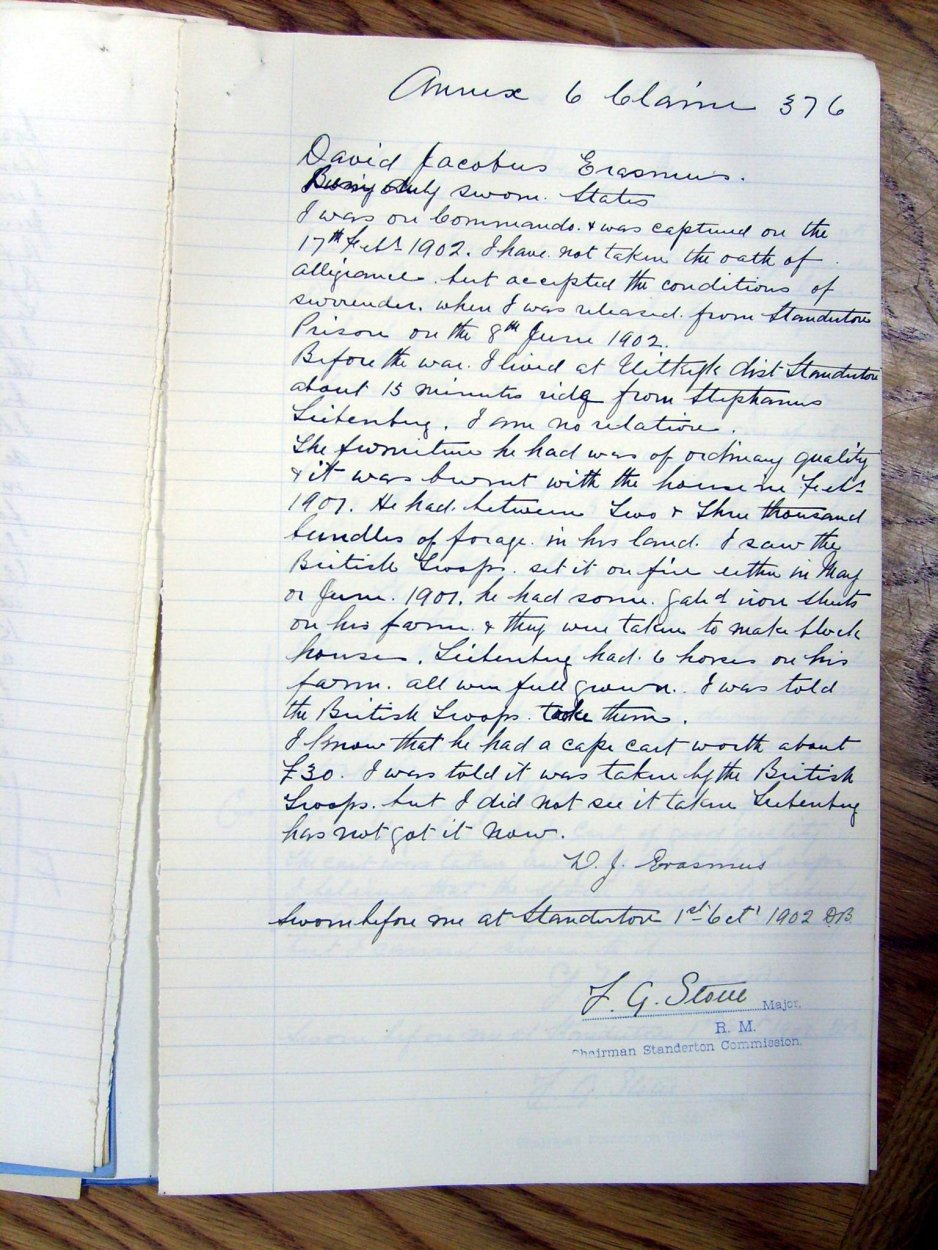 Annex 6 Claim 376
David Jacobus Erasmus.
Being duly sworn. States
I was on Commando. & was captured on the
17th Feb 1902. I have not taken the oath of
allegiance. but accepted the conditions of
surrender. when I was released. from Standerton
Prison on the 8th June 1902.
Before the war. I lived at dist Standerton
about 15 minutes ride from Stephanus
Liebenberg. I am no relation.
The furniture he had was of ordinary quality
& it was burnt with the house in Feb
1901. He had between Two & Three thousand
bundles of forage. in his land. I saw the
British Troops. set it on fire either in May
or June. 1901. he had some. galvd iron sheets
on his farm. & they were taken to make block
houses. Liebenberg had. 6 horses on his
farm. all were full grown. I was told
the British Troops. take them.
I know that he had a cape cart worth about
£30. I was told it was taken by the British
Troops. but I did not see it taken Liebenberg
has not got it now.
D. J. Erasmus
Sworn before me at Standerton 1st Oct 1902 DB.
F. G. Stone Major.
R. M.
Chairman Standerton Commission.